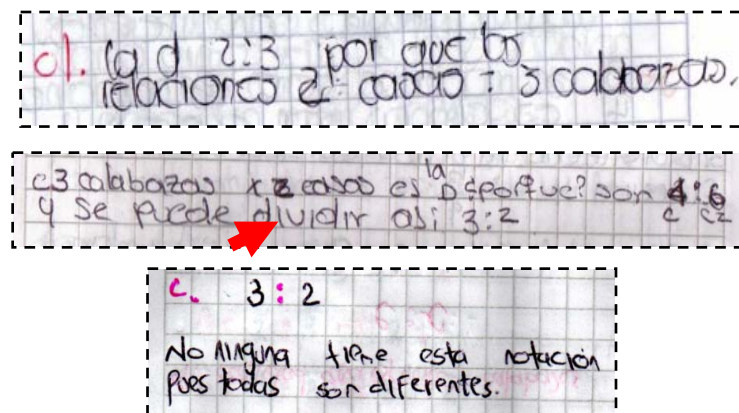 c). la d 2:3 por que los
relaciones 2 casas : 3 calabazas.
c3 calabazas x 2 casas es la D ¿porque? son 4:6
y se puede dividir asi 3:2 c cz
c. 3:2
No ninguna tiene esta notación
pues todas son diferentes.